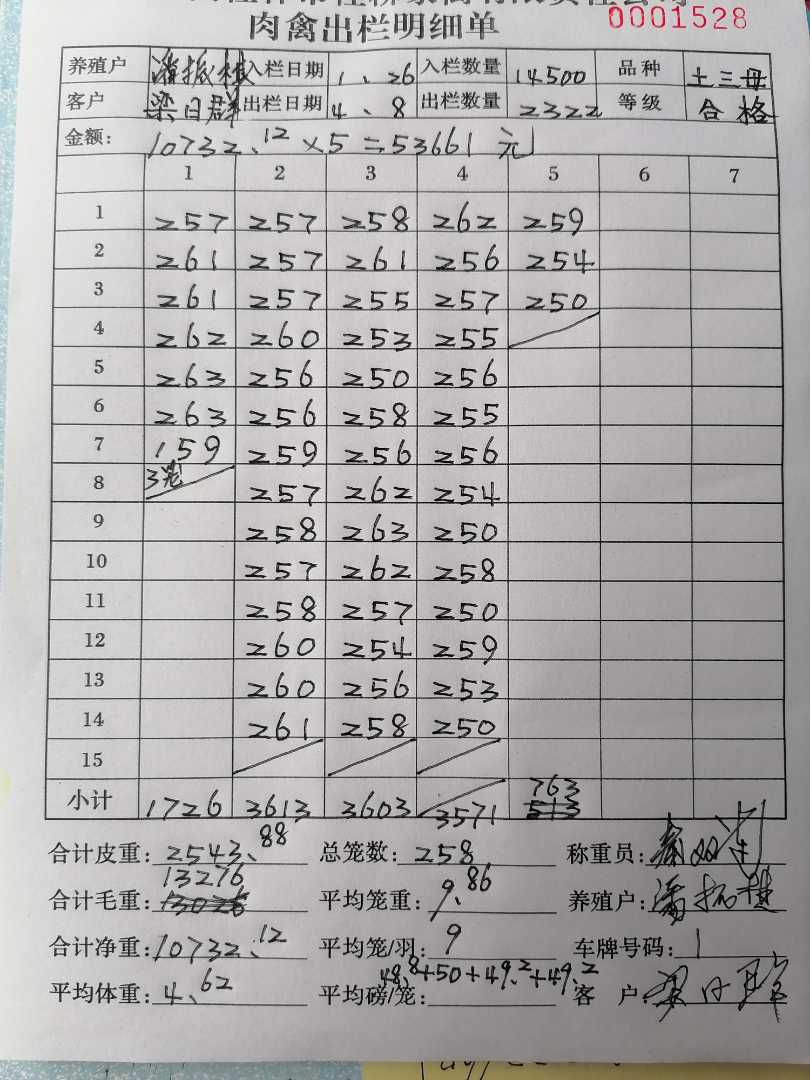 肉禽出栏明细单 0001528
养殖户 潘振 入栏日期 1、26 入栏数量 14500 品种 土三母
客户 梁日群 出栏日期 4、8 出栏数量 2322 等级 合格
金额: 10732、12×5=53661元
1 2 3 4 5 6 7
1 257 257 258 262 259
2 261 257 261 256 254
3 261 257 255 257 250
4 262 260 253 255
5 263 256 250 256
6 263 256 258 255
7 159 259 256 256
8 3笼 257 262 254
9 258 263 250
10 257 262 258
11 258 257 250
12 260 254 259
13 260 256 253
14 261 258 250
15
小计 1726 3613 3603 3571 763 513
合计皮重: 2543、88 总笼数: 258 称重员:
合计毛重: 13276 13026 平均笼重: 9、86 养殖户: 潘振
合计净重: 10732、12 平均笼/羽: 9 车牌号码: 1
平均体重: 4、62 平均磅/笼: 48.8+50+49.2+49.2 客 户: 梁日群